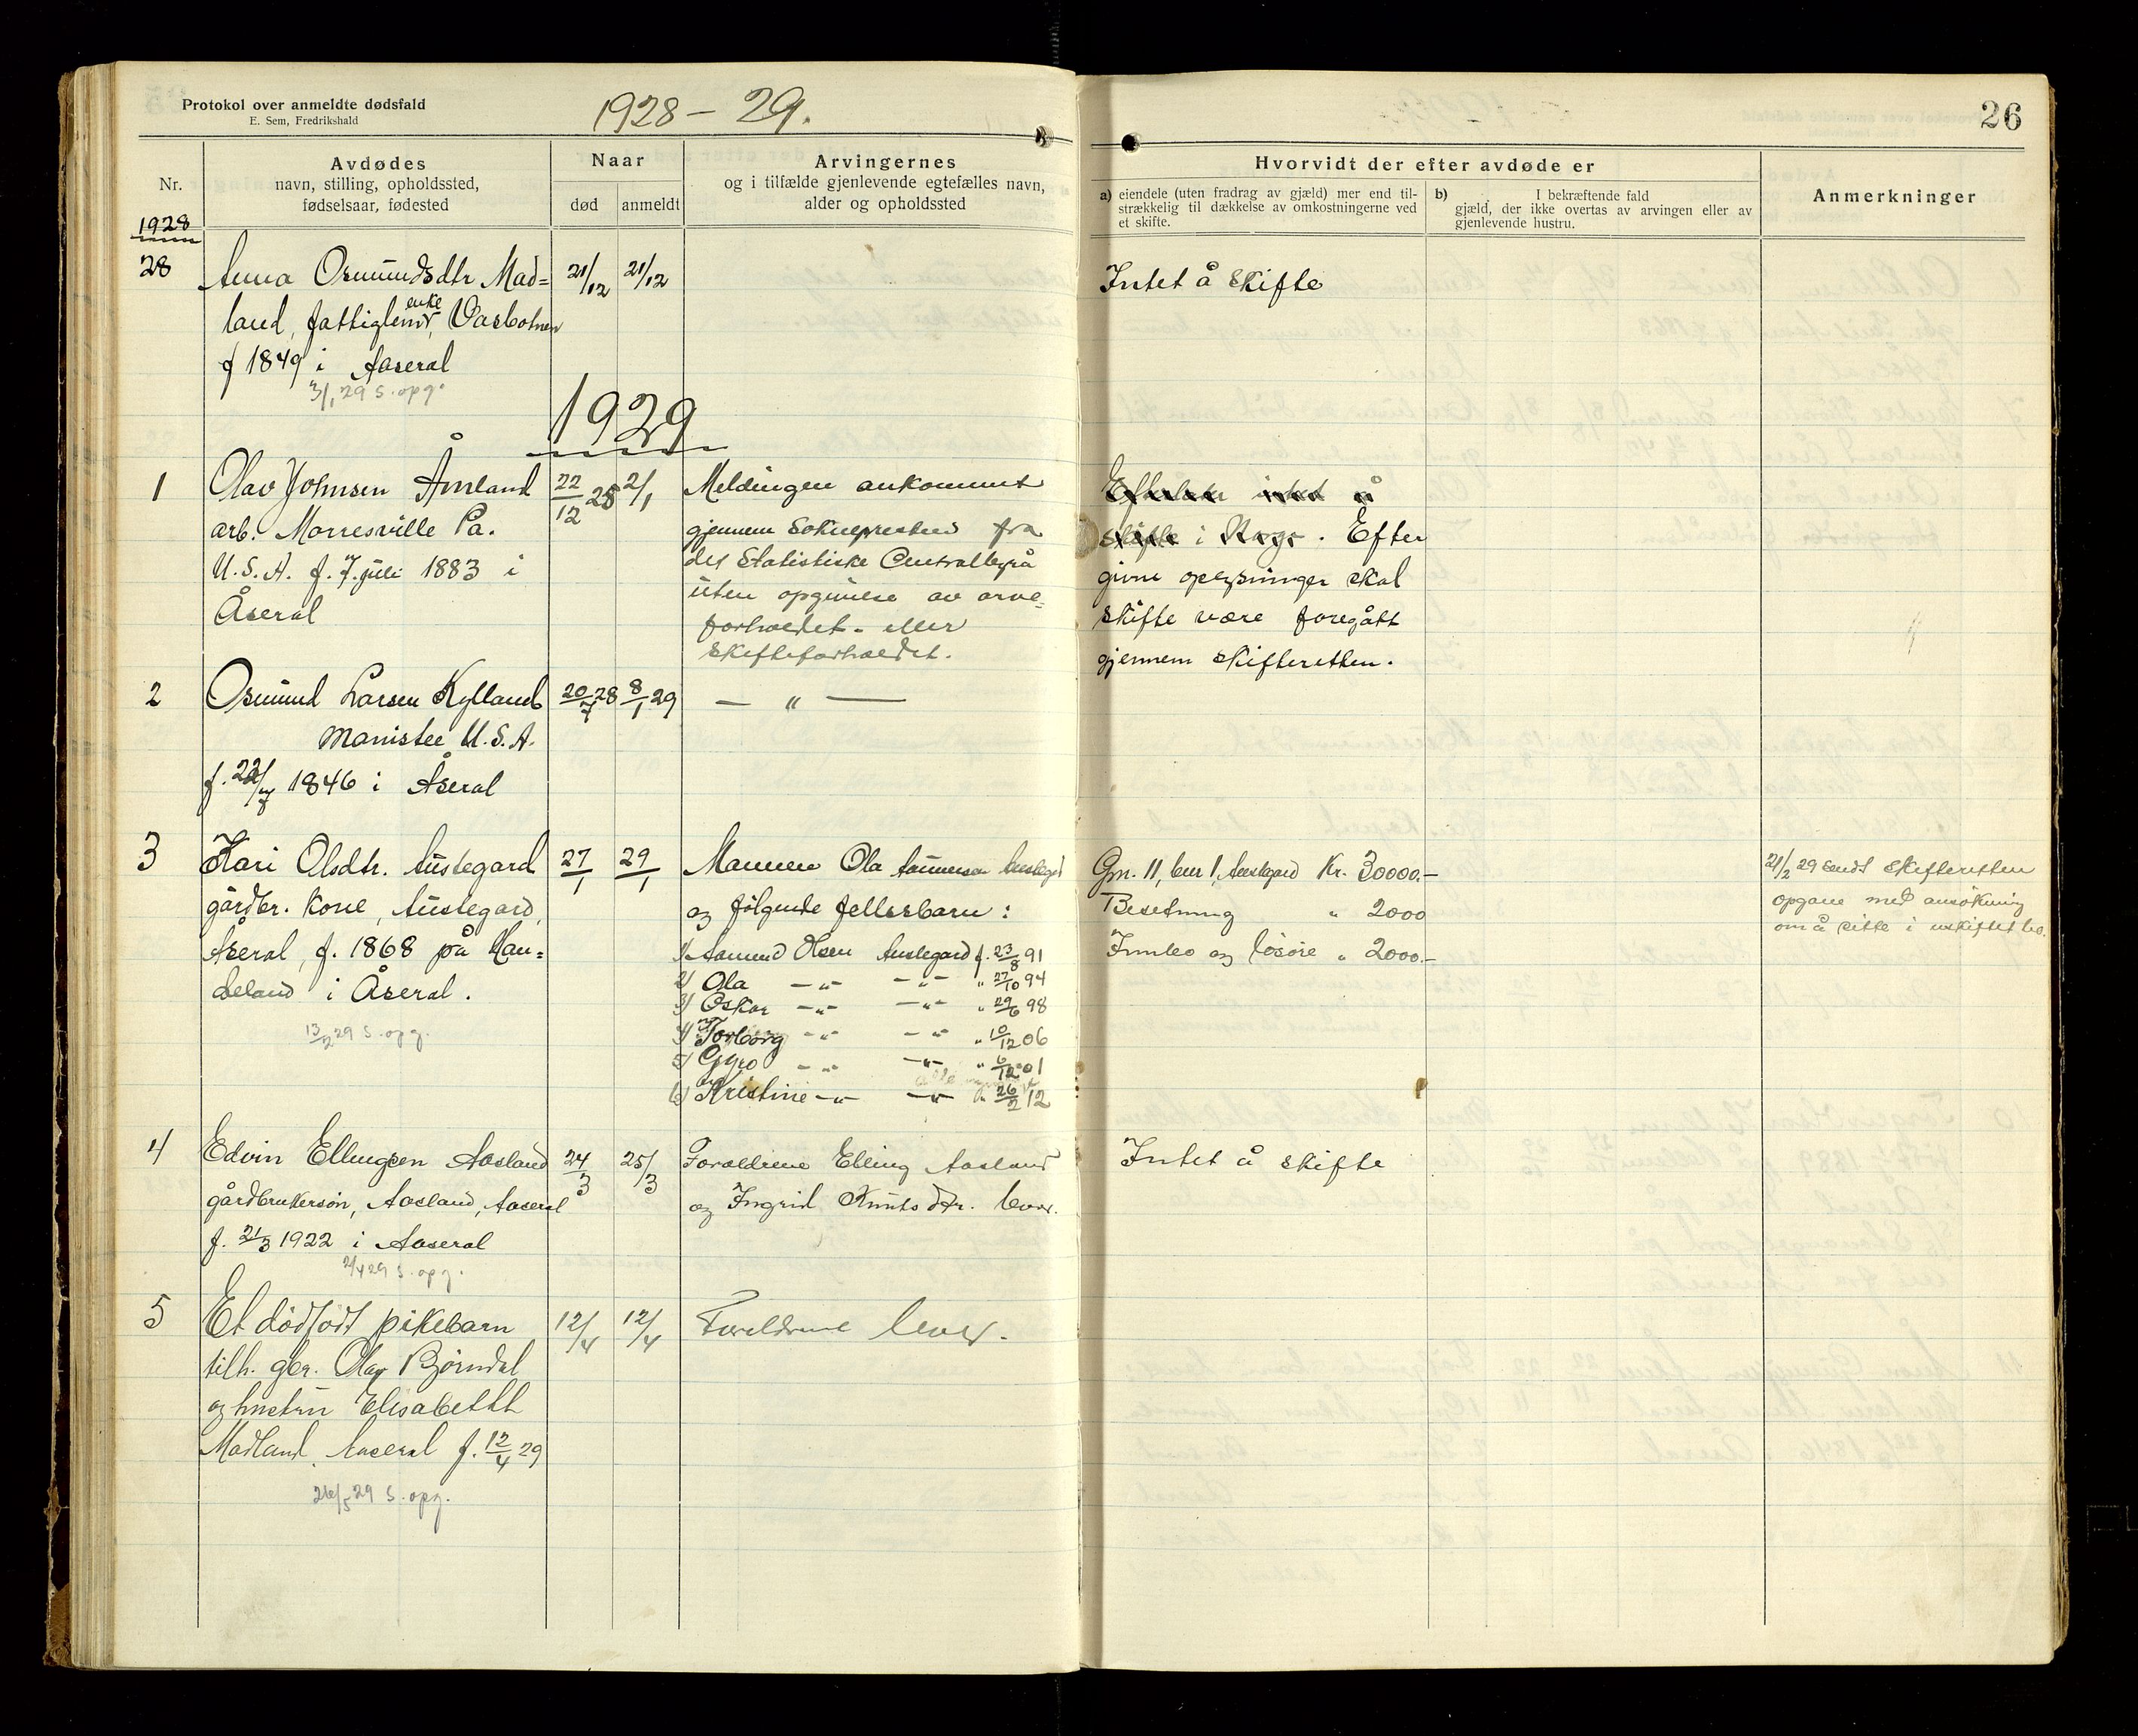 Protokol over anmeldte dødsfald
E. Sem, Fredrikshald
1928 – 29.
26
Nr.
Avdødes
navn, stilling, opholdssted,
fødselsaar, fødested
Naar
død
anmeldt
Arvingernes
og i tilfælde gjenlevende egtefælles navn,
alder og opholdssted
Hvorvidt der efter avdøde er
a) eiendele (uten fradrag av gjæld) mer end til-
strækkelig til dækkelse av omkostningerne ved
et skifte.
b) I bekræftende fald
gjæld, der ikke overtas av arvingen eller av
gjenlevende hustru.
Anmerkninger
1928
28 Anna Osmundsdtr Mad= 21/12 21/12 Intet å skifte
enke
land, fattiglem, Vasbotnen
f 1849 i Aaseral
3/1 29 S. opg.
1929
1 Olav Johnsen Åmland 22/12 28 2/1 Meldingen ankommet Efterlater intet å
arb. Morresville Pa. gjennem Sokneprestens fra skifte i Norge. Efter
U.S.A. f. 7. juli 1883 i det Statistiske Centralbyrå givne oplysninger skal
Åseral uten opgivelse av arve= skifte være foregått
forholdet. eller gjennem skifteretten.
skifteforholdet.
2 Osmund Larsen Kylland 20/7 28 8/1 29 — " —
Manistee U.S.A.
f. 22/7 1846 i Åseral
3 Kari Olsdtr. Austegard 27/1 29/1 Mannen Ola Aanensen Austegard Gnr. 11, bnr 1, Austegard Kr. 30000.– 21/2 29 sendt skifteretten
gårdbr. kone, Austegard, og følgende fellesbarn: Besetning " 2000 opgave med ansøkning
Åseral, f. 1868 på Han= 1) Aanund Olsen Austegard f. 23/8 91 Innbo og løsøre " 2000.– om å sitte i uskiftet bo.
deland i Åseral. 2) Ola –"– –"– " 27/10 94
3) Oskar –"– –"– " 29/6 98
13/2 29 S. opg. 4) Torborg –"– –"– " 10/12 06
5) Gyro –"– –"– " 6/12 01
6) Kristine –"– –"– " 26/2 12
4 Edvin Ellingsen Aasland 24/3 25/3 Foreldrene Elling Aasland Intet å skifte
gårdbrukersøn, Aasland, Aaseral og Ingrid Knutsdtr. lever.
f. 21/3 1922 i Aaseral
2/4 29 S. opg.
5 Et dødfødt pikebarn 12/4 12/4 Foreldrene lever.
tilh. gbr. Olav Bjørndal
og hustru Elisabeth
Madland, Aaseral f. 12/4 29
26/5 29 S. opg.